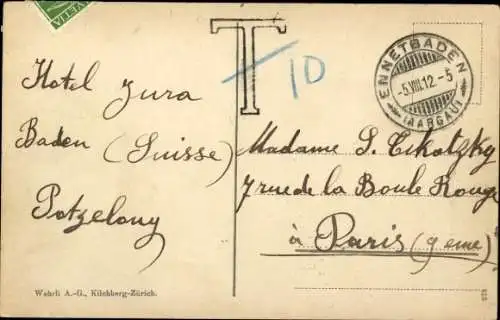 HELVETIA
T
10
ENNETBADEN
-5.VIII.12.-5
(AARGAU)
Hotel Jura
Baden (Suisse)
Potzelony
Madame S. Tskotzky
7 rue de la Boule Rouge
à Paris (9 eme)
Wehrli A.-G., Kilchberg-Zürich.